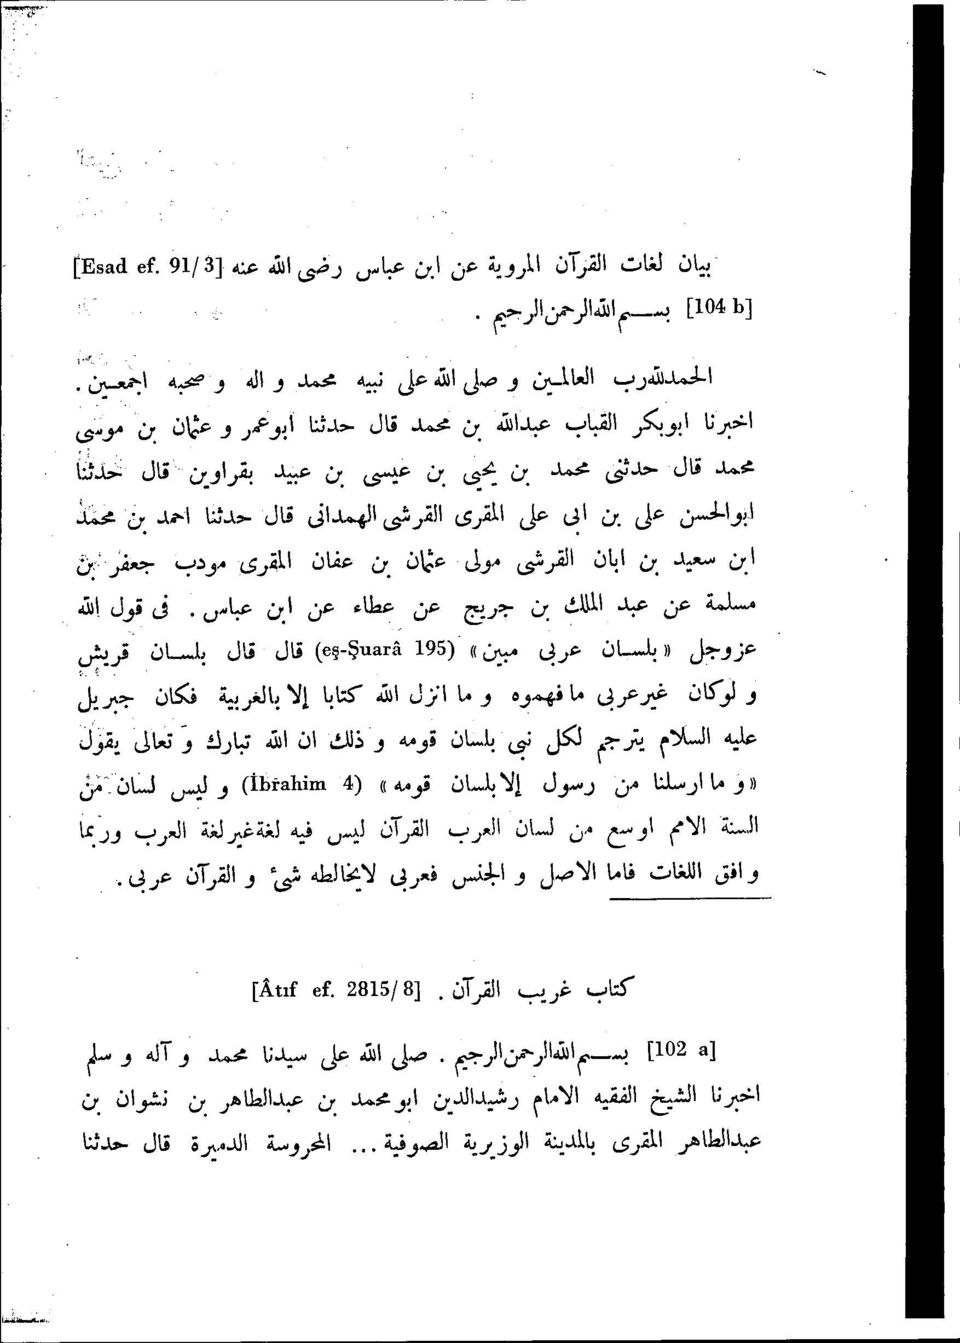 بيان لغات القرآن المروية عن ابن عباس رضى الله عنه [Esad ef. 91/3]
[104 b] بسم الله الرحمن الرحيم .
الحمدلله رب العالمين و صلى الله على نبيه محمد و اله و صحبه اجمعين .
اخبرنا ابوبكر القباب عبدالله بن محمد قال حدثنا ابوعمر و عثمان بن موسى
محمد قال حدثنى محمد بن يحيى بن عيسى بن عبيد بقراوين قال حدثنا
ابوالحسن على بن ابى على المقرى القرشى الهمدانى قال حدثنا احمد بن محمد
ابن سعيد بن ابان القرشى مولى عثمان بن عفان المقرى مودب جعفر بن
مسلمة عن عبد الملك بن جريج عن عطاء عن ابن عباس . فى قول الله
عزوجل «بلسان عربى مبين» (eş-Şuarâ 195) قال قال بلسان قريش
و لوكان غيرعربى ما فهموه و ما انزل الله كتابا إلا بالغربية فكان جبريل
عليه السلام يترجم لكل نبى بلسان قومه و ذلك ان الله تبارك و تعالى يقول
«و ما ارسلنا من رسول إلا بلسان قومه» (İbrahim 4) و ليس لسان من
السنة الامم اوسع من لسان العرب القرآن ليس فيه لغة غيرلغة العرب وربما
وافق اللغات فاما الاصل و الجنس فعربى لايخالطه شئ و القرآن عربى .
كتاب غريب القرآن . [Âtıf ef. 2815/8]
[102 a] بسم الله الرحمن الرحيم . صلى الله على سيدنا محمد و آله و سلم
اخبرنا الشيخ الفقيه الامام رشيدالدين ابو محمد بن عبدالطاهر بن نشوان بن
عبدالطاهر المقرى بالمدينة الوزيرية الصوفية ... المحروسة الدميرة قال حدثنا